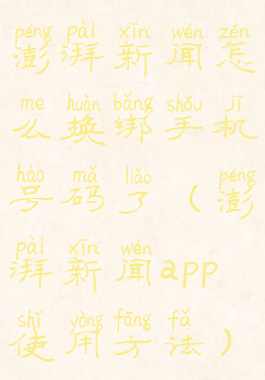 péng pài xīn wén zěn
澎湃新闻怎
me huàn bǎng shǒu jī
么换绑手机
hào mǎ liǎo péng
号码了（澎
pài xīn wén
湃新闻app
shǐ yòng fāng fǎ
使用方法）